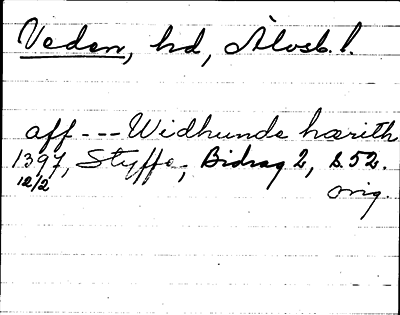 Veden, hd, Älvsb. l.
aff --- Widhunde hærith
1397, Styffe, Bidrag 2, s. 52.
12/2 orig.